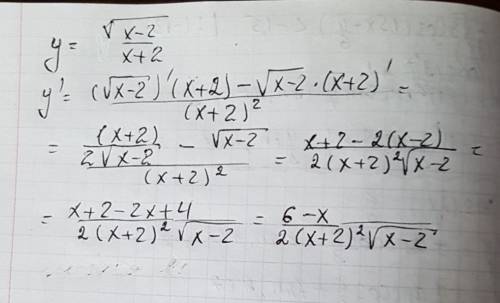 y = √(x-2) / (x+2)
y' = ((√(x-2))'(x+2) - √(x-2)·(x+2)') / (x+2)² =
= ((x+2)/(2√(x-2)) - √(x-2)) / (x+2)² = (x+2-2(x-2)) / (2(x+2)²√(x-2)) =
= (x+2-2x+4) / (2(x+2)²√(x-2)) = (6-x) / (2(x+2)²√(x-2))